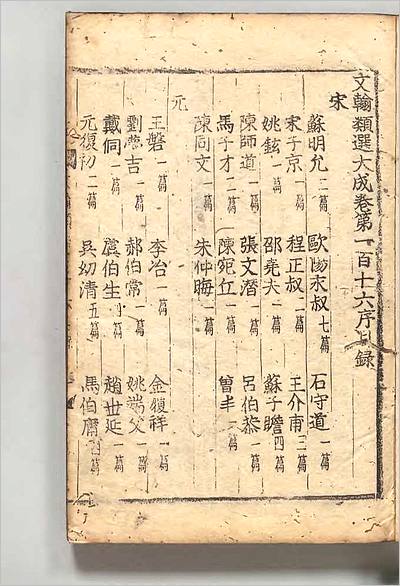 文翰類選大成卷第一百十六序目錄
宋
蘇明允 二篇 歐陽永叔 七篇 石守道 一篇
宋子京 一篇 程正叔 二篇 王介甫 三篇
姚鉉 一篇 邵堯夫 一篇 蘇子瞻 四篇
陳師道 一篇 張文潛 一篇 呂伯恭 一篇
馬子才 二篇 陳宛丘 一篇 曾丰 一篇
陳同文 一篇 朱仲晦 一篇
元
王磐 一篇 李冶 一篇 金履祥 一篇
劉夢吉 一篇 郝伯常 一篇 姚端父 一篇
戴侗 一篇 虞伯生 篇 趙世延 一篇
元復初 二篇 吳幼清 五篇 馬伯庸 篇